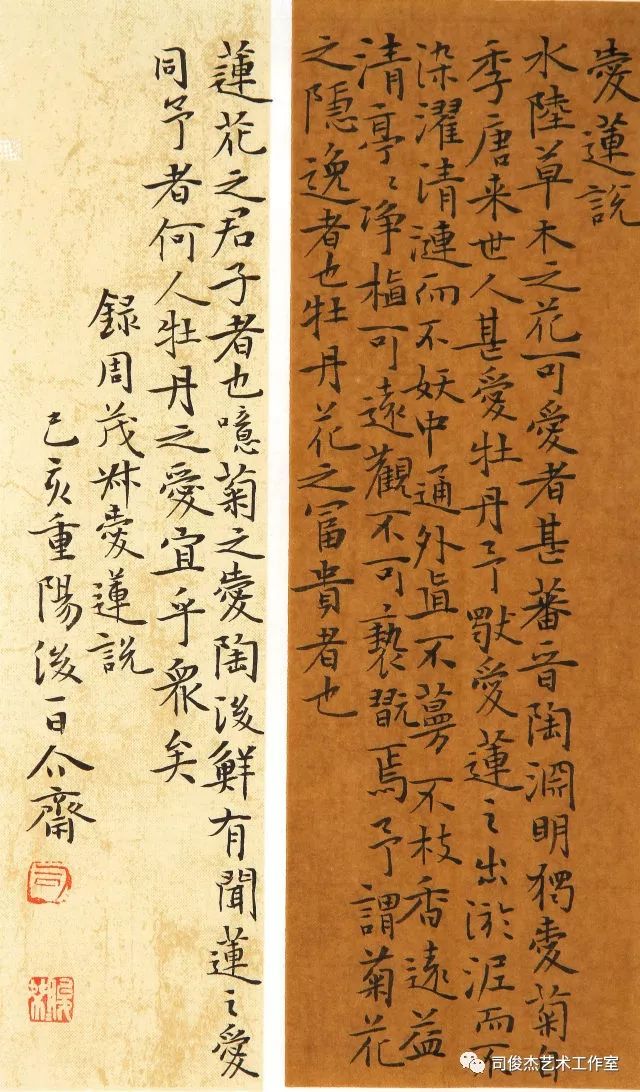 愛蓮說
水陸草木之花可愛者甚蕃晉陶淵明獨愛菊自
季唐来世人甚愛牡丹予獨愛蓮之出淤泥而不
染濯清漣而不妖中通外直不蔓不枝香遠益
清亭〻净植可遠觀不可褻翫焉予謂菊花
之隱逸者也牡丹花之冨貴者也
蓮花之君子者也噫菊之愛陶後鮮有聞蓮之愛
同予者何人牡丹之愛宜乎眾矣
錄周茂叔愛蓮說
己亥重陽後一日介齋
司
司俊杰艺术工作室